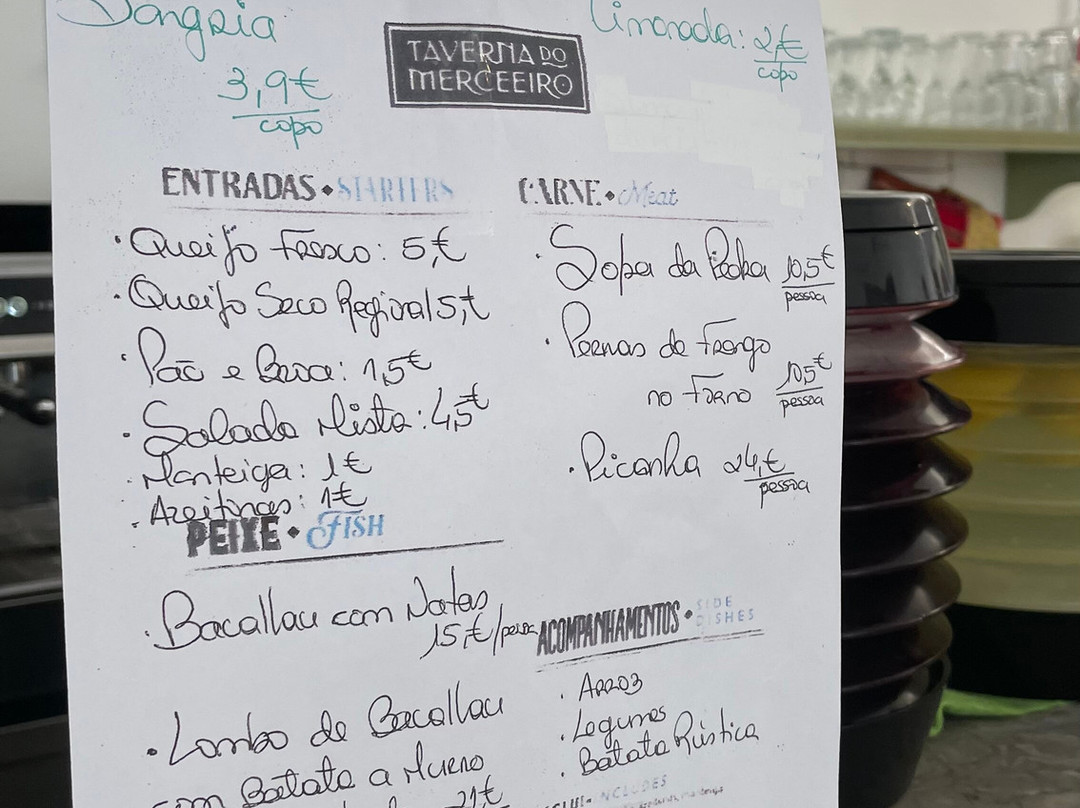 Sangria
3,9€
copo
TAVERNA DO
MERCEEIRO
Limonada: 2€
copo
ENTRADAS • STARTERS
• Queijo Fresco: 5,€
• Queijo Seco Regional 5,€
• Pão e Broa: 1,5€
• Salada Mista: 4,5€
• Manteiga: 1€
• Azeitonas: 1€
PEIXE • FISH
• Bacallau com Natas
15€/pessoa
• Lombo de Bacallau
com Batata a Murro
21€
CARNE • Meat
• Sopa da Pedra 10,5€
pessoa
• Pernas de Frango
no Forno 10,5€
pessoa
• Picanha 24,€
pessoa
ACOMPANHAMENTOS • SIDE
DISHES
• Arroz
• Legumes
• Batata Rústica
INCLUDES